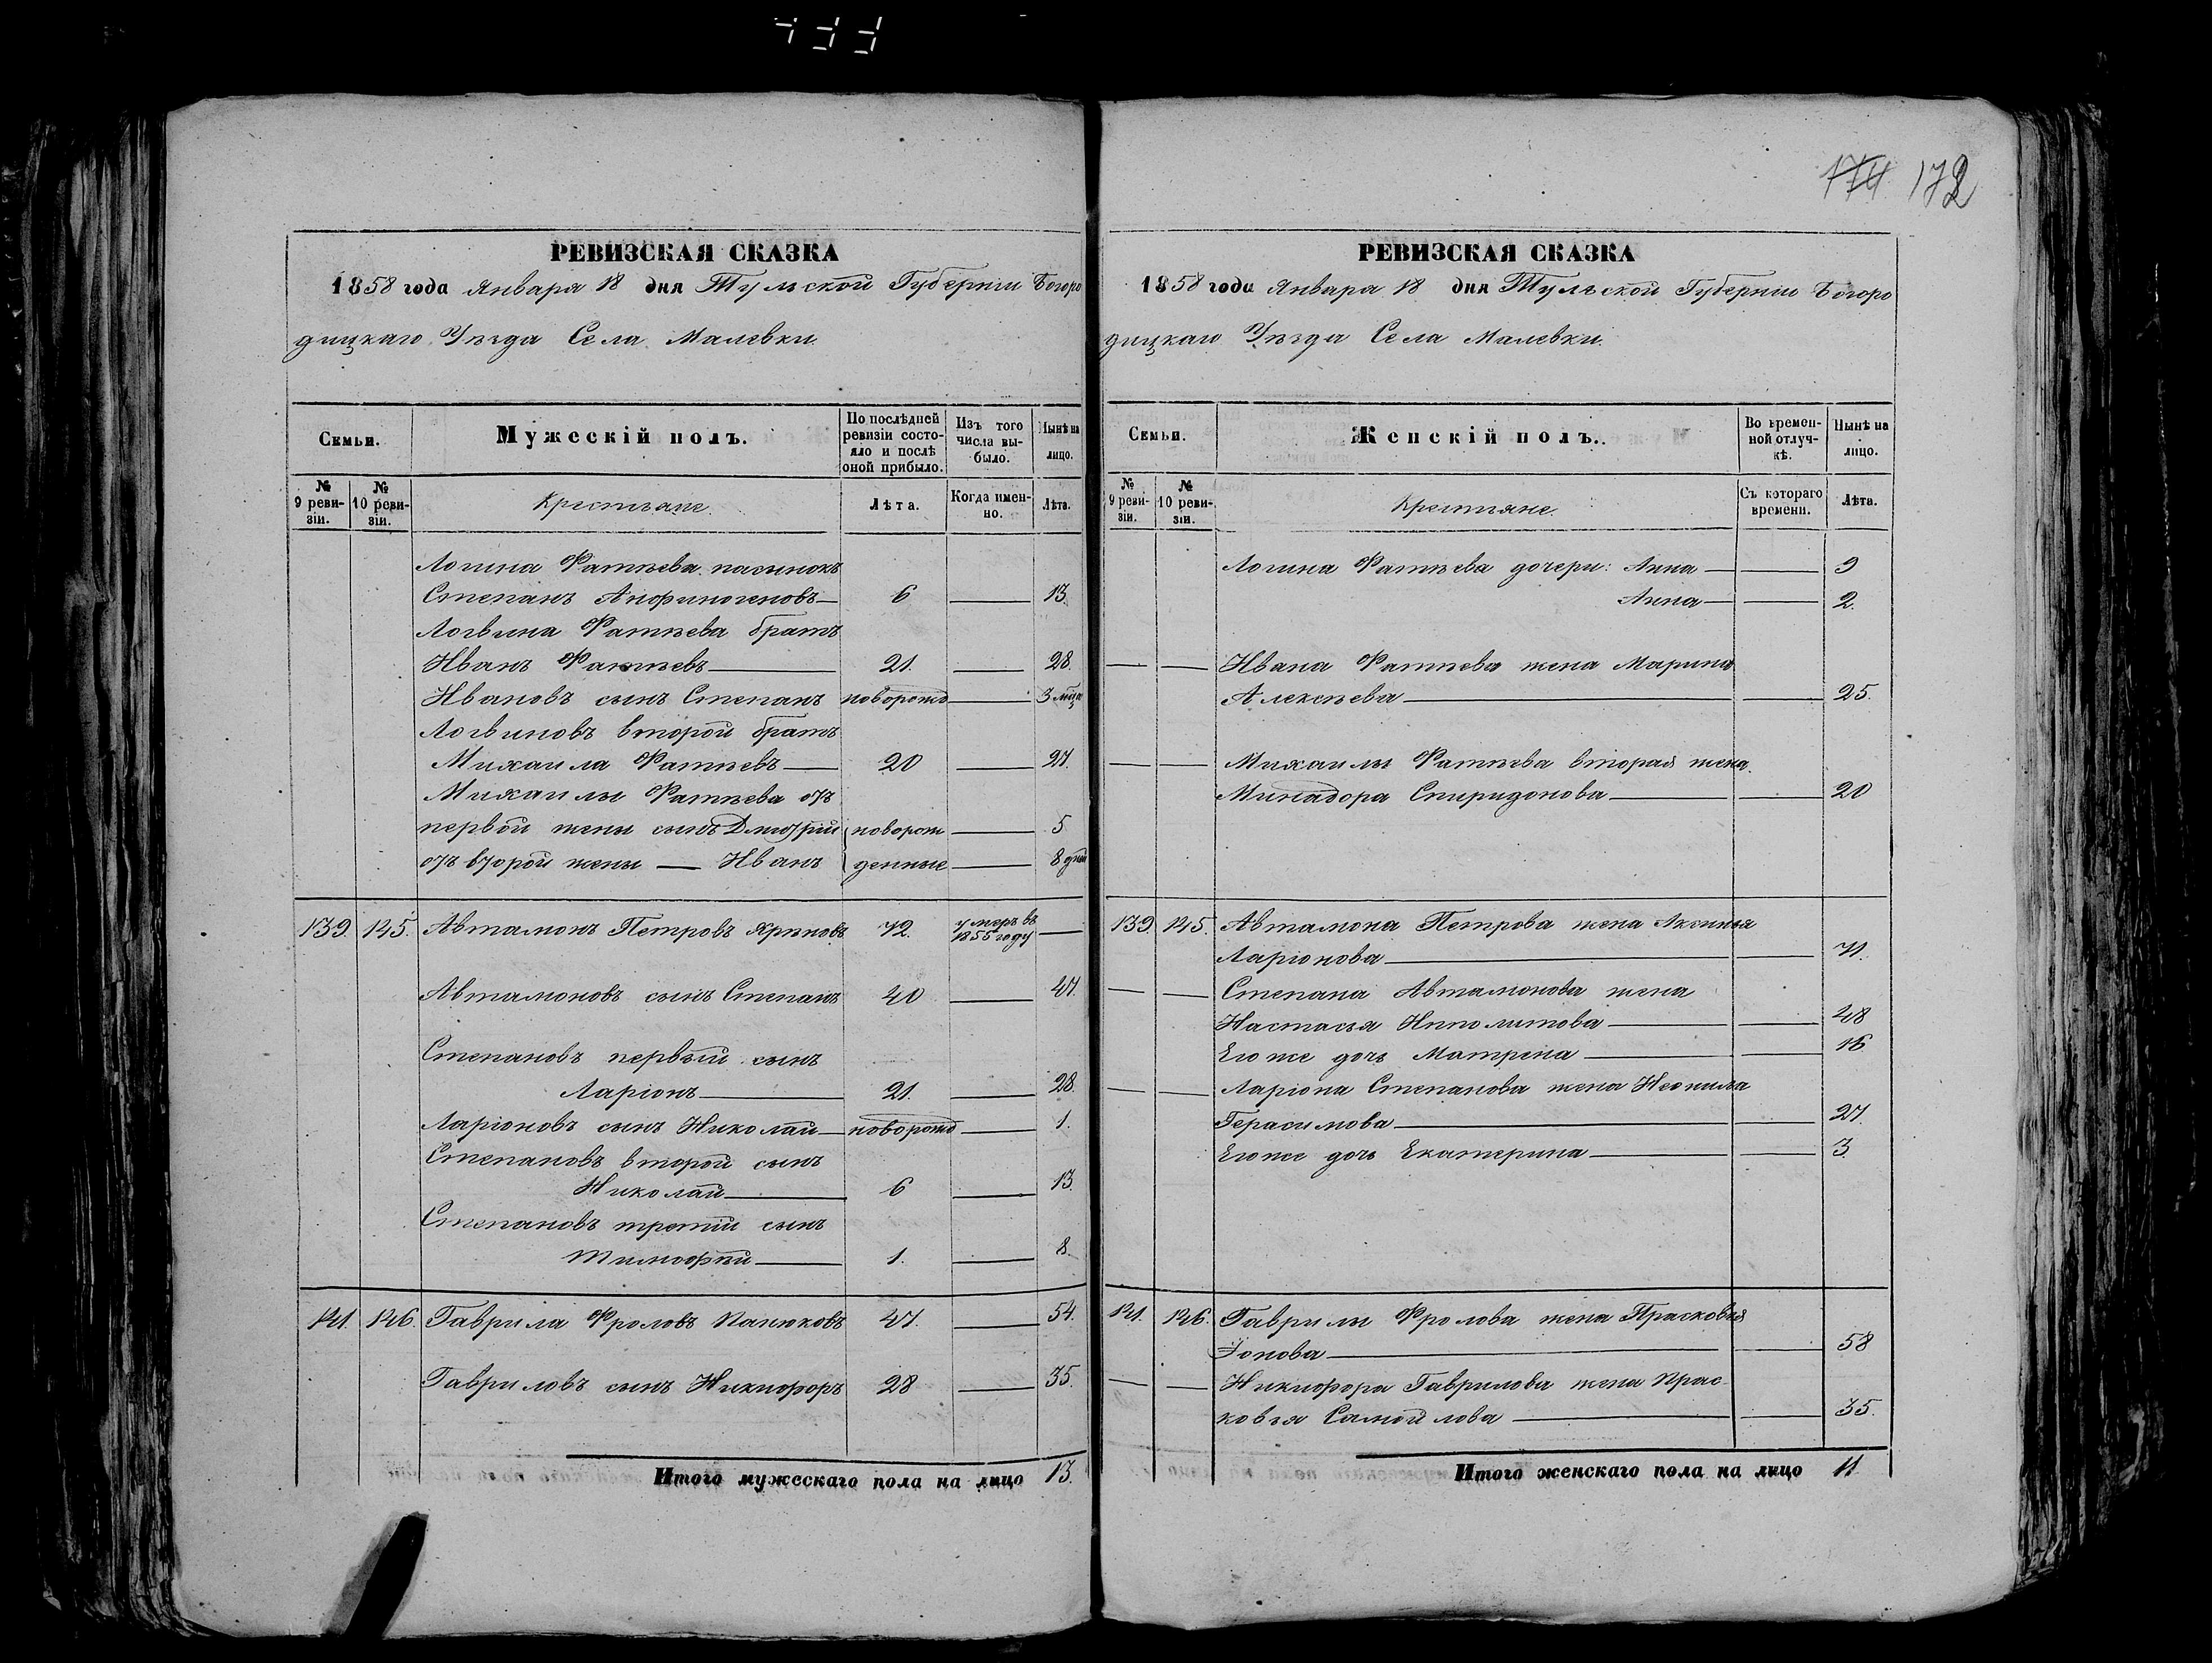 174 172
РЕВИЗСКАЯ СКАЗКА
1858 года Января 18 дня Тульской Губерніи Богоро
дицкаго Уѣзда Села Малевки.
Семьи.
Мужескій полъ.
По послѣдней ревизіи состояло и послѣ оной прибыло.
Изъ того числа выбыло.
Нынѣ на лицо.
№ 9 ревизіи.
№ 10 ревизіи.
Крестьяне.
Лѣта.
Когда именно.
Лѣта.
Логина Фатѣева пасынокъ
Степанъ Анфиногеновъ 6 13.
Логвина Фатѣева братъ
Иванъ Фатѣевъ 21. 28.
Ивановъ сынъ Степанъ новорожд 3 мѣся
Логвиновъ второй братъ
Михаила Фатѣевъ 20 27.
Михаилы Фатѣева отъ
первой жены сынъ Дмитрій новорож 5
отъ второй жены — Иванъ денные 8 дней
139. 145. Автамонъ Петровъ 72. умеръ въ 1855 году
Автамоновъ сынъ Степанъ 40 47.
Степановъ первый сынъ
Ларіонъ 21. 28.
Ларіоновъ сынъ Николай новорожд 1.
Степановъ второй сынъ
Николай 6 13.
Степановъ третій сынъ
Тимофѣй 1. 8.
141. 146. Гаврила Фроловъ Панюковъ 47. 54.
Гавриловъ сынъ Никифоръ 28 35.
Итого мужескаго пола на лицо 13.
РЕВИЗСКАЯ СКАЗКА
1858 года Января 18 дня Тульской Губерніи Богоро
дицкаго Уѣзда Села Малевки.
Семьи.
Женскій полъ.
Во временной отлучкѣ.
Нынѣ на лицо.
№ 9 ревизіи.
№ 10 ревизіи.
Крестьяне.
Съ котораго времени.
Лѣта.
Логина Фатѣева дочери: Анна 9
Анна 2.
Ивана Фатѣева жена Марина
Алексѣева 25.
Михаилы Фатѣева вторая жена
Минадора Спиридонова 20
139. 145. Автамона Петрова жена Аксинья
Ларіонова 71.
Степана Автамонова жена
Настасья Ипполитова 48
Его же дочь Матрена 16
Ларіона Степанова жена Неонила
Герасимова 27.
Его же дочь Екатерина 3.
141. 146. Гаврилы Фролова жена Прасковья
Іонова 58
Никифора Гаврилова жена Прас-
ковья Самойлова 35.
Итого женскаго пола на лицо 11